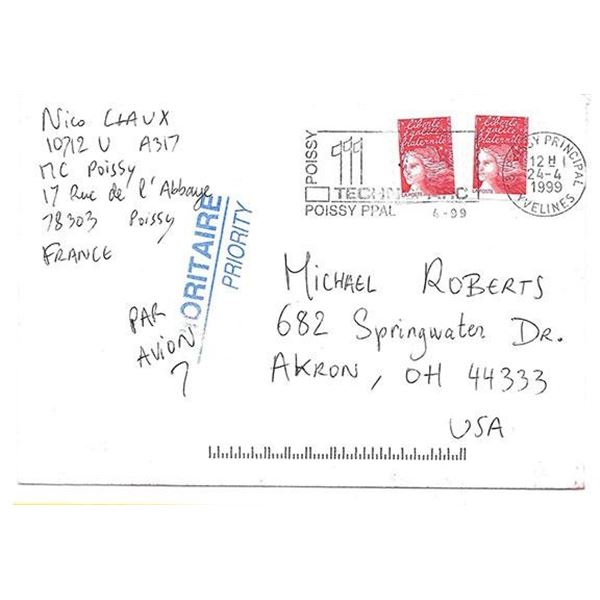 Nico CLAUX
10712 U A317
MC Poissy
17 Rue de l'Abbaye
78303 Poissy
FRANCE
ORITAIRE
PRIORITY
PAR
AVION
POISSY
TECHN
POISSY PPAL
4-99
liberté
égalité
fraternité
liberté
égalité
fraternité
PRINCIPAL
12 H
24-4
1999
YVELINES
MICHAEL ROBERTS
682 Springwater DR.
AKRON, OH 44333
USA